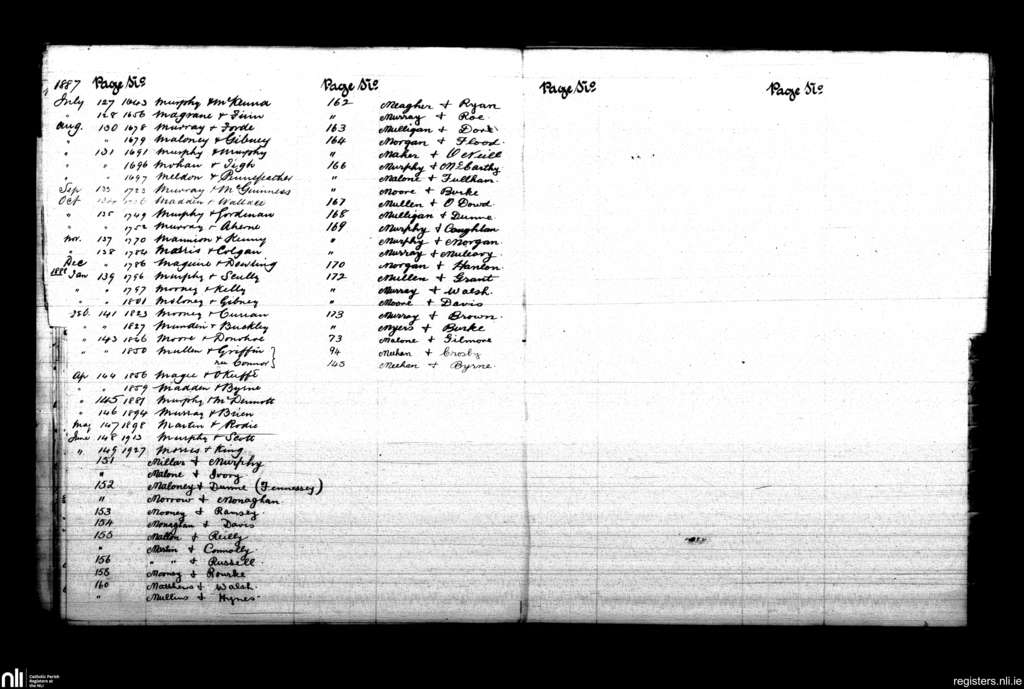 1887 Page No
July 127 1643 Murphy & McKenna
" 128 1656 Magrane & Finn
Aug. 130 1678 Murray & Forde
" " 1679 Maloney & Gibney
" 131 1691 Murphy & Murphy
" " 1696 Mohan & Tigh
" " 1697 Meldon &
Sep 133 1723 Murray & McGuinness
Oct Madden & Wallace
" 135 1749 Murphy &
" " 1752 Murray & Aherne
Nov. 137 1770 Mannion & Kenny
" 138 1784 Morris & Colgan
Dec " 1786 Maguire & Dowling
1888 Jan 139 1796 Murphy & Scully
" " 1797 Mooney & Kelly
" " 1801 Moloney & Gibney
Feb. 141 1823 Mooney & Curran
" " 1827 & Buckley
" 143 1846 Moore & Donohoe
" " 1850 Mullen & Griffin
nee Connor
Ap 144 1856 Magee & O'Keeffe
" " 1859 Madden & Byrne
" 145 1881 Murphy & McDermott
" 146 1894 Murray & Brien
May 147 1898 Martin & Rodie
June 148 1913 Murphy & Scott
" 149 1927 Morris & King
151 Millar & Murphy
" Malone & Ivory
152 Maloney & Dunne (Fennessey)
" Morrow & Monaghan
153 Mooney & Ramsey
154 Monaghan & Davis
155 Mallon & Reilly
" Martin & Connolly
156 " " & Russell
158 Mooney & Rourke
160 Matthews & Walsh
" Mullins & Hynes
Page No
162 Meagher & Ryan
" Murray & Roe
163 Mulligan & Dork
164 Morgan & Flood
" Maher & O'Neill
166 Murphy & McCarthy
" Malone & Fullham
" Moore & Burke
167 Mullen & O'Dowd
168 Mulligan & Dunne
169 Murphy & Coughlan
" Murphy & Morgan
" Murray & Mulvory
170 Morgan & Hanlon
172 Mullen & Grant
" Murray & Walsh
" Moore & Davis
173 Murray & Brown
" Myers & Burke
73 Malone & Gilmore
94 Mehan & Crosby
145 Meehan & Byrne
Page No
Page No
nli Catholic Parish Registers at the NLI
registers.nli.ie